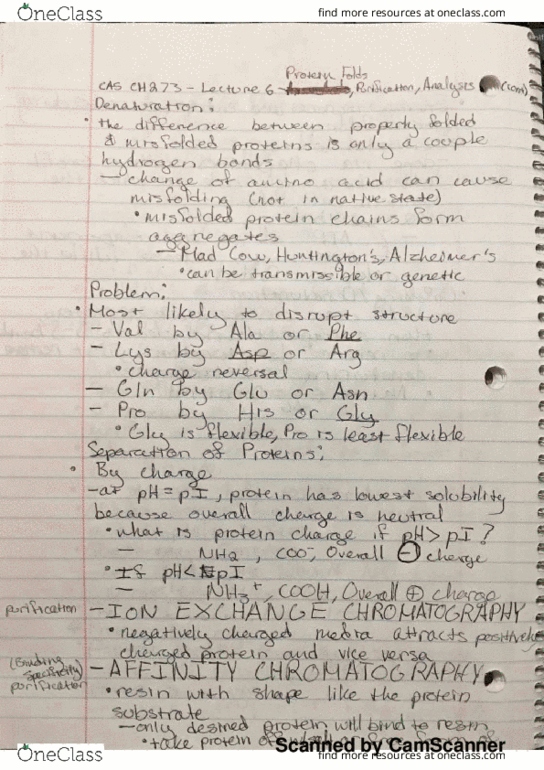 OneClass
find more resources at oneclass.com
Protein Folds
CAS CH273 - Lecture 6 - , Purification, Analysis (cont)
Denaturation:
• the difference between properly folded
& misfolded proteins is only a couple
hydrogen bonds
- change of amino acid can cause
misfolding (not in native state)
• misfolded protein chains form
aggregates
- Mad Cow, Huntington's, Alzheimer's
• can be transmissible or genetic
Problem:
• Most likely to disrupt structure
- Val by Ala or Phe
- Lys by Asp or Arg
• charge reversal
- Gln by Glu or Asn
- Pro by His or Gly
• Gly is flexible, Pro is least flexible
Separation of Proteins:
• By charge
- at pH = pI, protein has lowest solubility
because overall charge is neutral
• what is protein charge if pH > pI?
- NH2, COO-, Overall ⊖ charge
• If pH < pI
- NH3+, COOH, Overall ⊕ charge
purification - ION EXCHANGE CHROMATOGRAPHY
• negatively charged media attracts positively
charged protein and vice versa
(Binding specificity) purification - AFFINITY CHROMATOGRAPHY
• resin with shape like the protein
substrate
- only desired protein will bind to resin
• take protein of
Scanned by CamScanner
OneClass
find more resources at oneclass.com